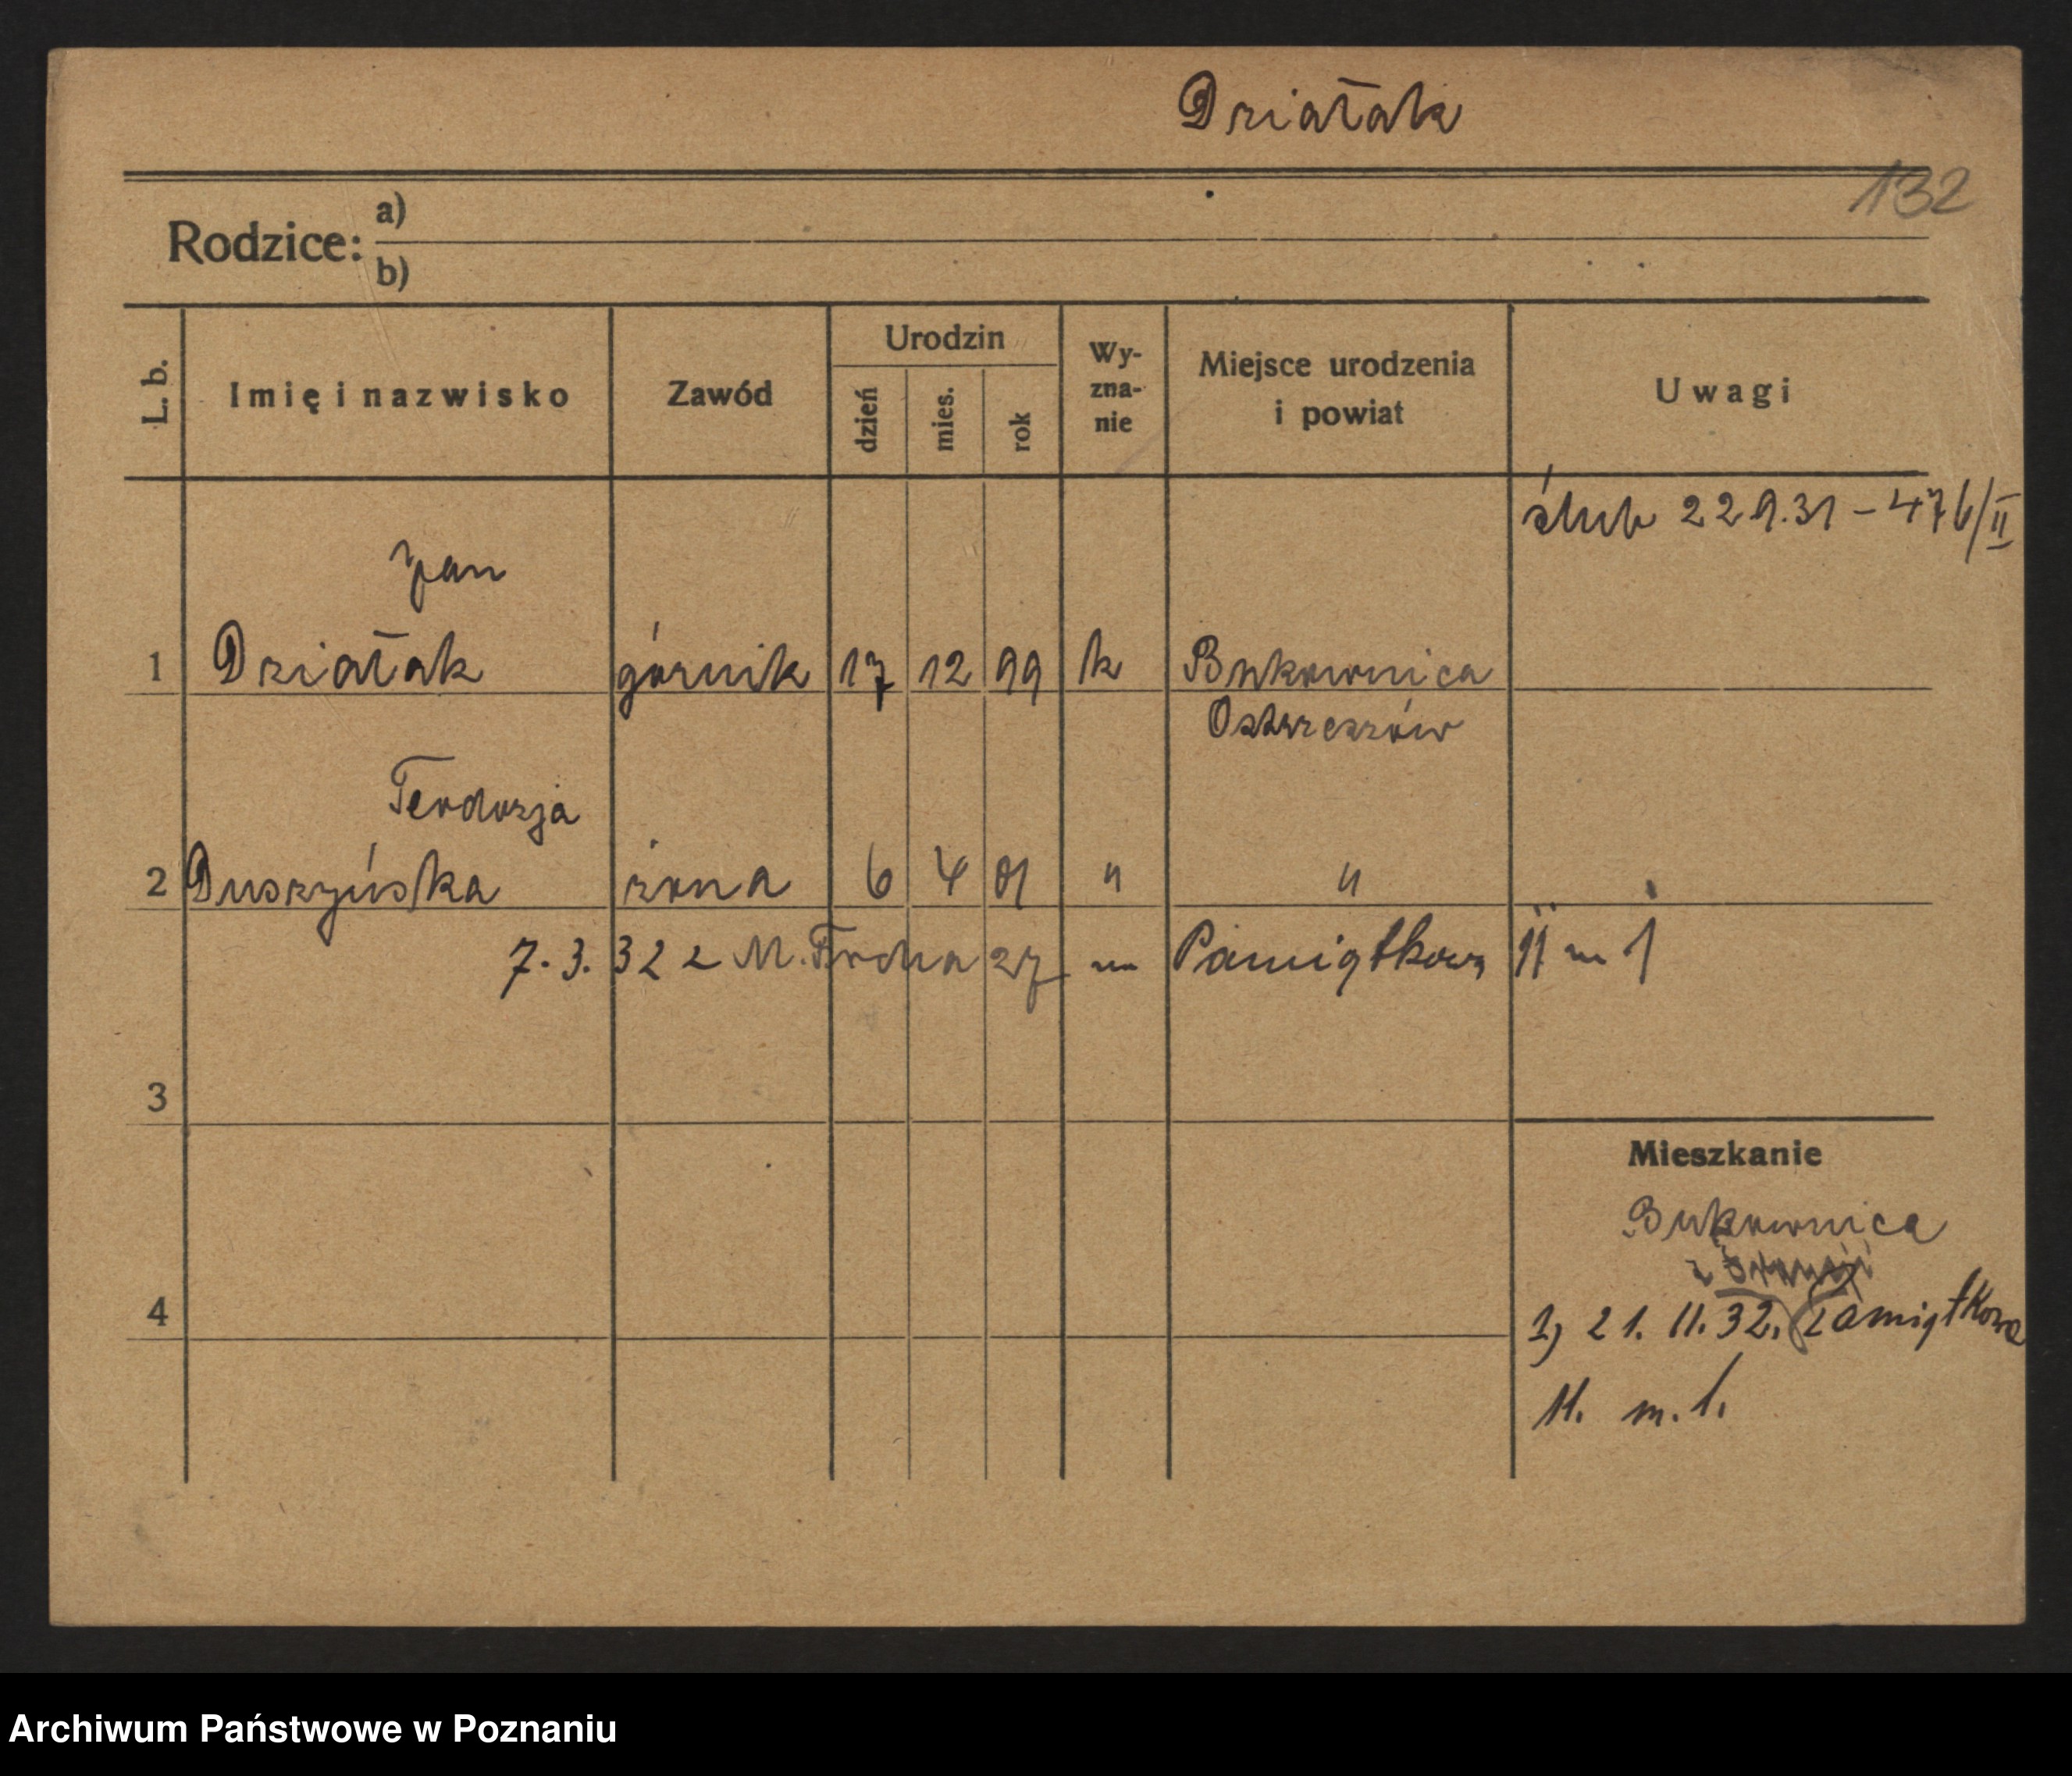 Działak
132
Rodzice: a)
b)
L. b. Imię i nazwisko Zawód Urodzin dzień mies. rok Wy-zna-nie Miejsce urodzenia i powiat Uwagi
ślub 22 9.31 – 476/II
Jan
1 Działak górnik 17 12 99 k Bukownica
Ostrzeszów
Teodozja
2 Duszyńska żona 6 4 01 " "
7. 3. 32 z M. Focha 27 Pamiątkowa 11 m 1
3
Mieszkanie
Bukownica
4
1) 21. 11. 32. Pamiątkowa
11. m. 1.
Archiwum Państwowe w Poznaniu